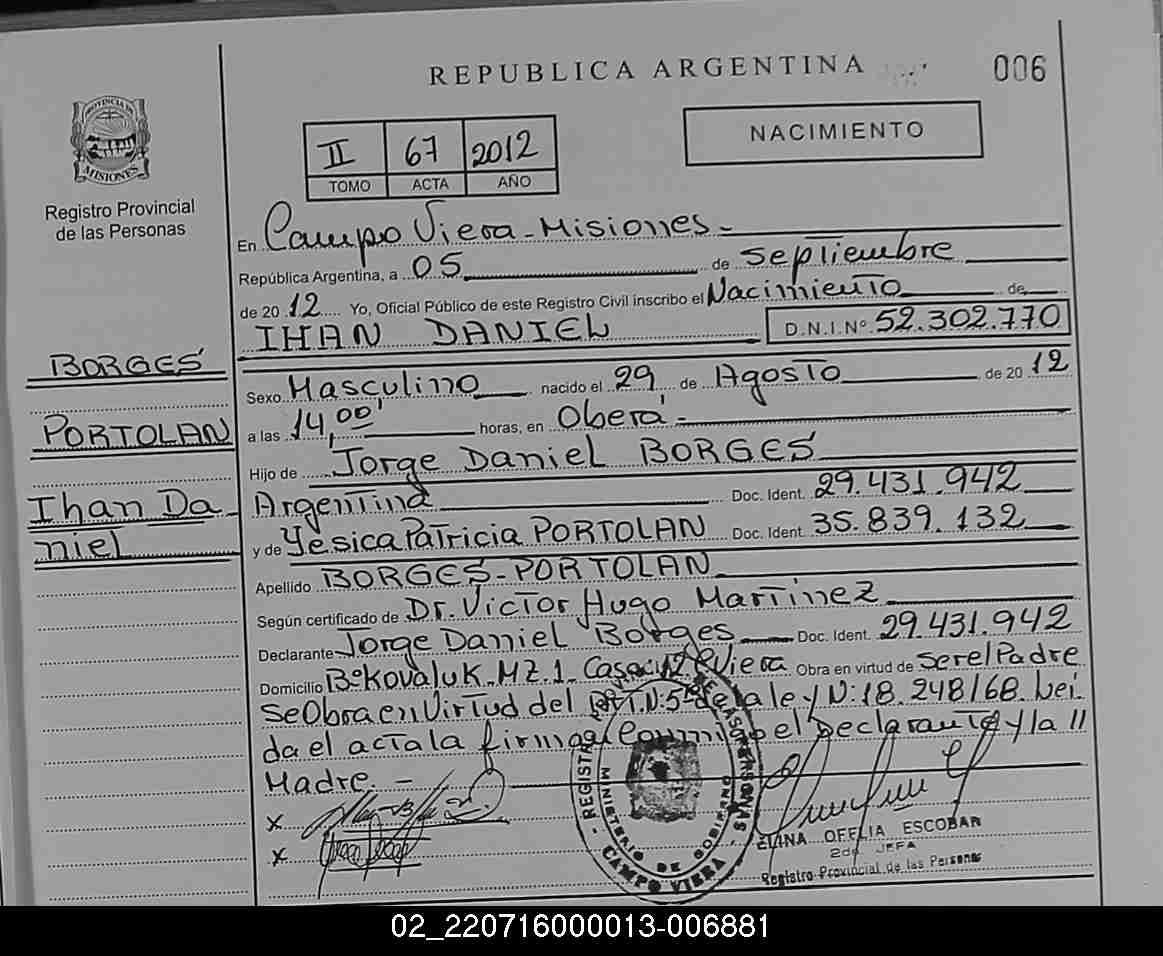 REPUBLICA ARGENTINA
006
PROVINCIA DE
MISIONES
Registro Provincial
de las Personas
II 67 2012
TOMO ACTA AÑO
NACIMIENTO
En Campo Viera - Misiones -
República Argentina, a 05 de septiembre
de 2012 Yo, Oficial Público de este Registro Civil inscribo el Nacimiento de
IHAN DANIEL D.N.I.Nº 52.302.770
BORGES
PORTOLAN
Ihan Da
niel
Sexo Masculino nacido el 29 de Agosto de 2012
a las 14,00' horas, en Oberá -
Hijo de Jorge Daniel BORGES
Argentina Doc. Ident. 29.431.942
y de Yesica Patricia PORTOLAN Doc. Ident. 35.839.132
Apellido BORGES - PORTOLAN
Según certificado de Dr. Victor Hugo Martinez
Declarante Jorge Daniel Borges Doc. Ident. 29.431.942
Domicilio Bº Kovaluk. MZ. 1 Casa: Viera Obra en virtud de ser el Padre
Se Obra en Virtud del y N: 18.248/68. Lei
da el acta la firma el Declarante y la
Madre -
X
X
REGISTRO PERSONAS
MINISTERIO DE GOBIERNO
CAMPO VIERA
ELINA OFELIA ESCOBAR
2da JEFA
Registro Provincial de las Personas
02_220716000013-006881